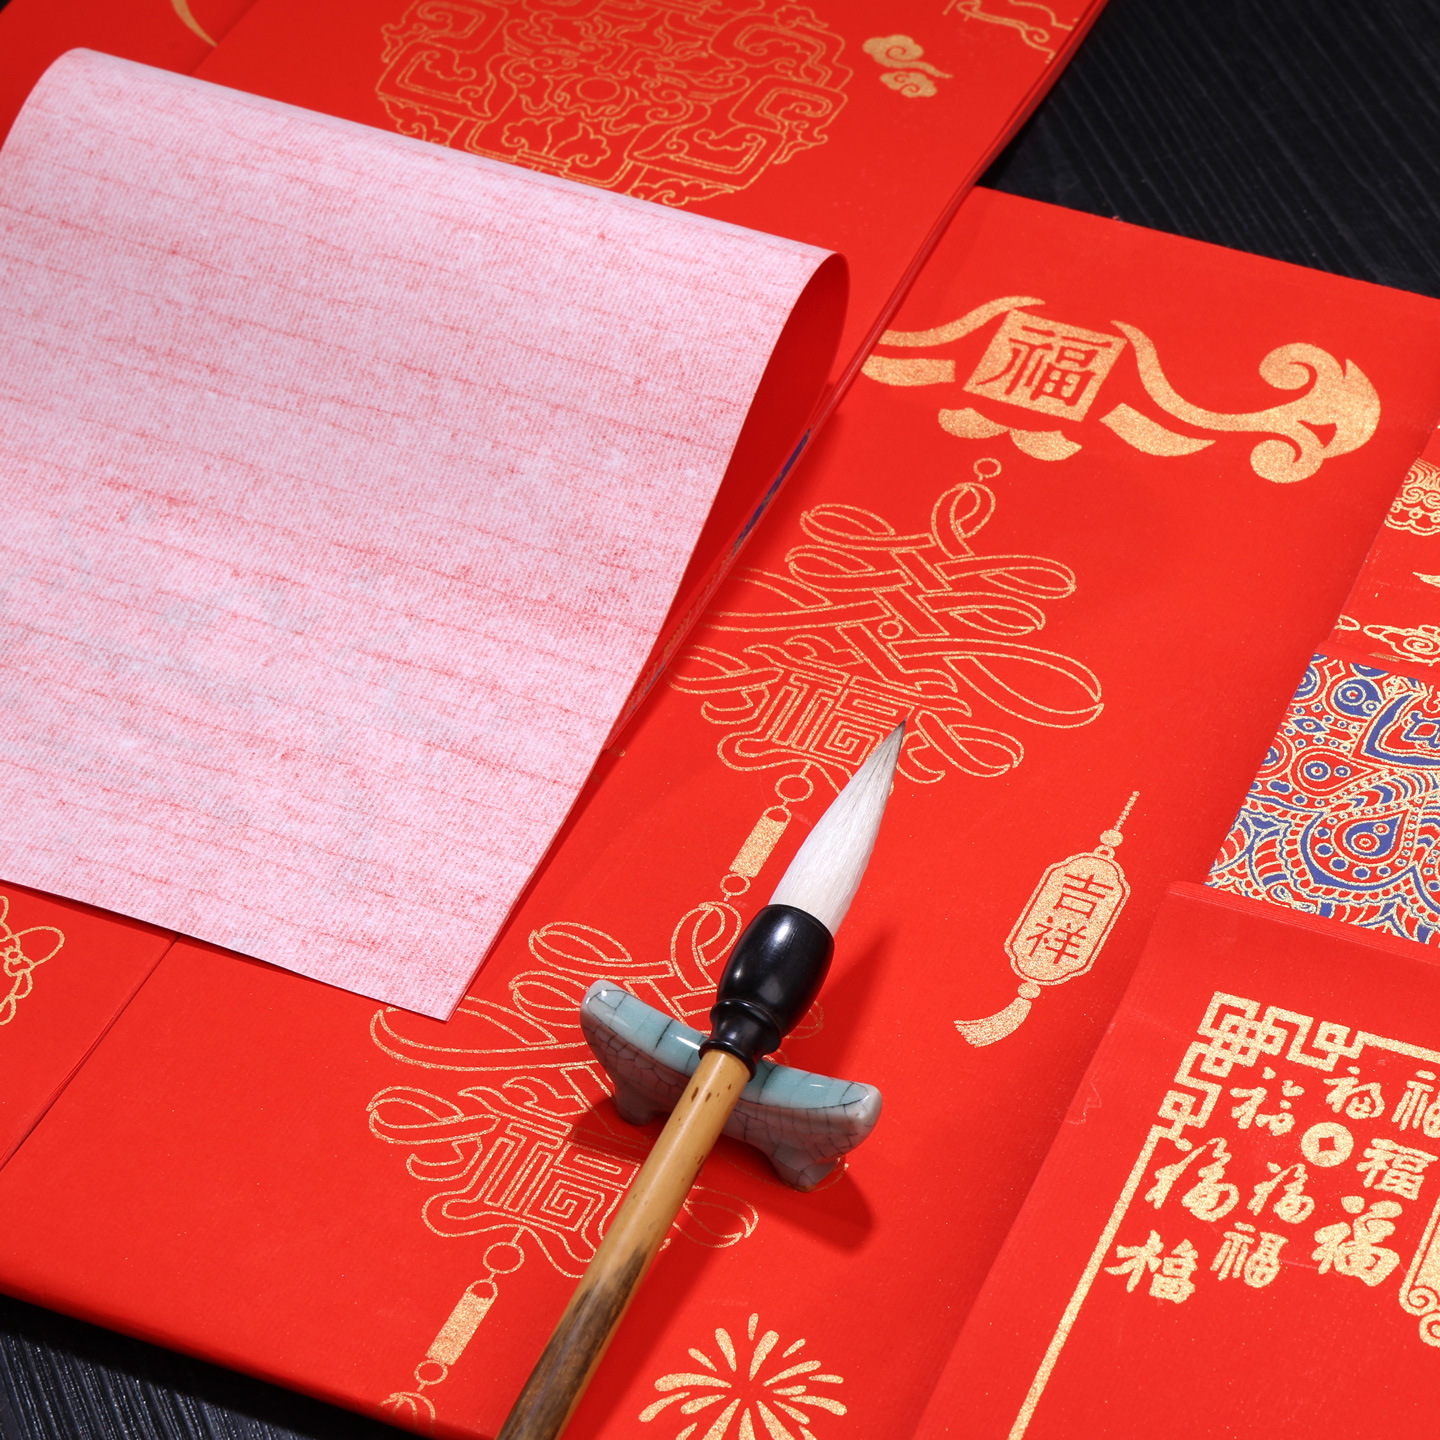 福
福
吉
祥
福
福
福
福
福
福
福
福
福
福